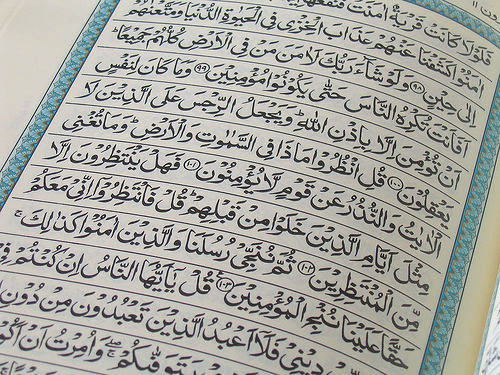 فَلَوْلَا كَانَتْ قَرْيَةٌ اٰمَنَتْ فَنَفَعَهَا
اٰمَنُوْا كَشَفْنَا عَنْهُمْ عَذَابَ الْخِزْيِ فِي الْحَيٰوةِ الدُّنْيَا وَمَتَّعْنٰهُمْ
اِلٰى حِيْنٍ ﴿۹۸﴾ وَلَوْ شَآءَ رَبُّكَ لَاٰمَنَ مَنْ فِي الْاَرْضِ كُلُّهُمْ جَمِيْعًا ؕ
اَفَاَنْتَ تُكْرِهُ النَّاسَ حَتّٰى يَكُوْنُوْا مُؤْمِنِيْنَ ﴿۹۹﴾ وَمَا كَانَ لِنَفْسٍ
اَنْ تُؤْمِنَ اِلَّا بِاِذْنِ اللّٰهِ ؕ وَيَجْعَلُ الرِّجْسَ عَلَى الَّذِيْنَ لَا
يَعْقِلُوْنَ ﴿۱۰۰﴾ قُلِ انْظُرُوْا مَاذَا فِي السَّمٰوٰتِ وَالْاَرْضِ ؕ وَمَا تُغْنِي
الْاٰيٰتُ وَالنُّذُرُ عَنْ قَوْمٍ لَّا يُؤْمِنُوْنَ ﴿۱۰۱﴾ فَهَلْ يَنْتَظِرُوْنَ اِلَّا
مِثْلَ اَيَّامِ الَّذِيْنَ خَلَوْا مِنْ قَبْلِهِمْ ؕ قُلْ فَانْتَظِرُوْۤا اِنِّيْ مَعَكُمْ
مِّنَ الْمُنْتَظِرِيْنَ ﴿۱۰۲﴾ ثُمَّ نُنَجِّيْ رُسُلَنَا وَالَّذِيْنَ اٰمَنُوْا كَذٰلِكَ ۚ
حَقًّا عَلَيْنَا نُنْجِ الْمُؤْمِنِيْنَ ﴿۱۰۳﴾ قُلْ يٰۤاَيُّهَا النَّاسُ اِنْ كُنْتُمْ فِيْ
دِيْنِيْ فَلَاۤ اَعْبُدُ الَّذِيْنَ تَعْبُدُوْنَ مِنْ دُوْنِ
يَتَوَفّٰىكُمْ ۖ وَاُمِرْتُ اَنْ اَكُوْنَ